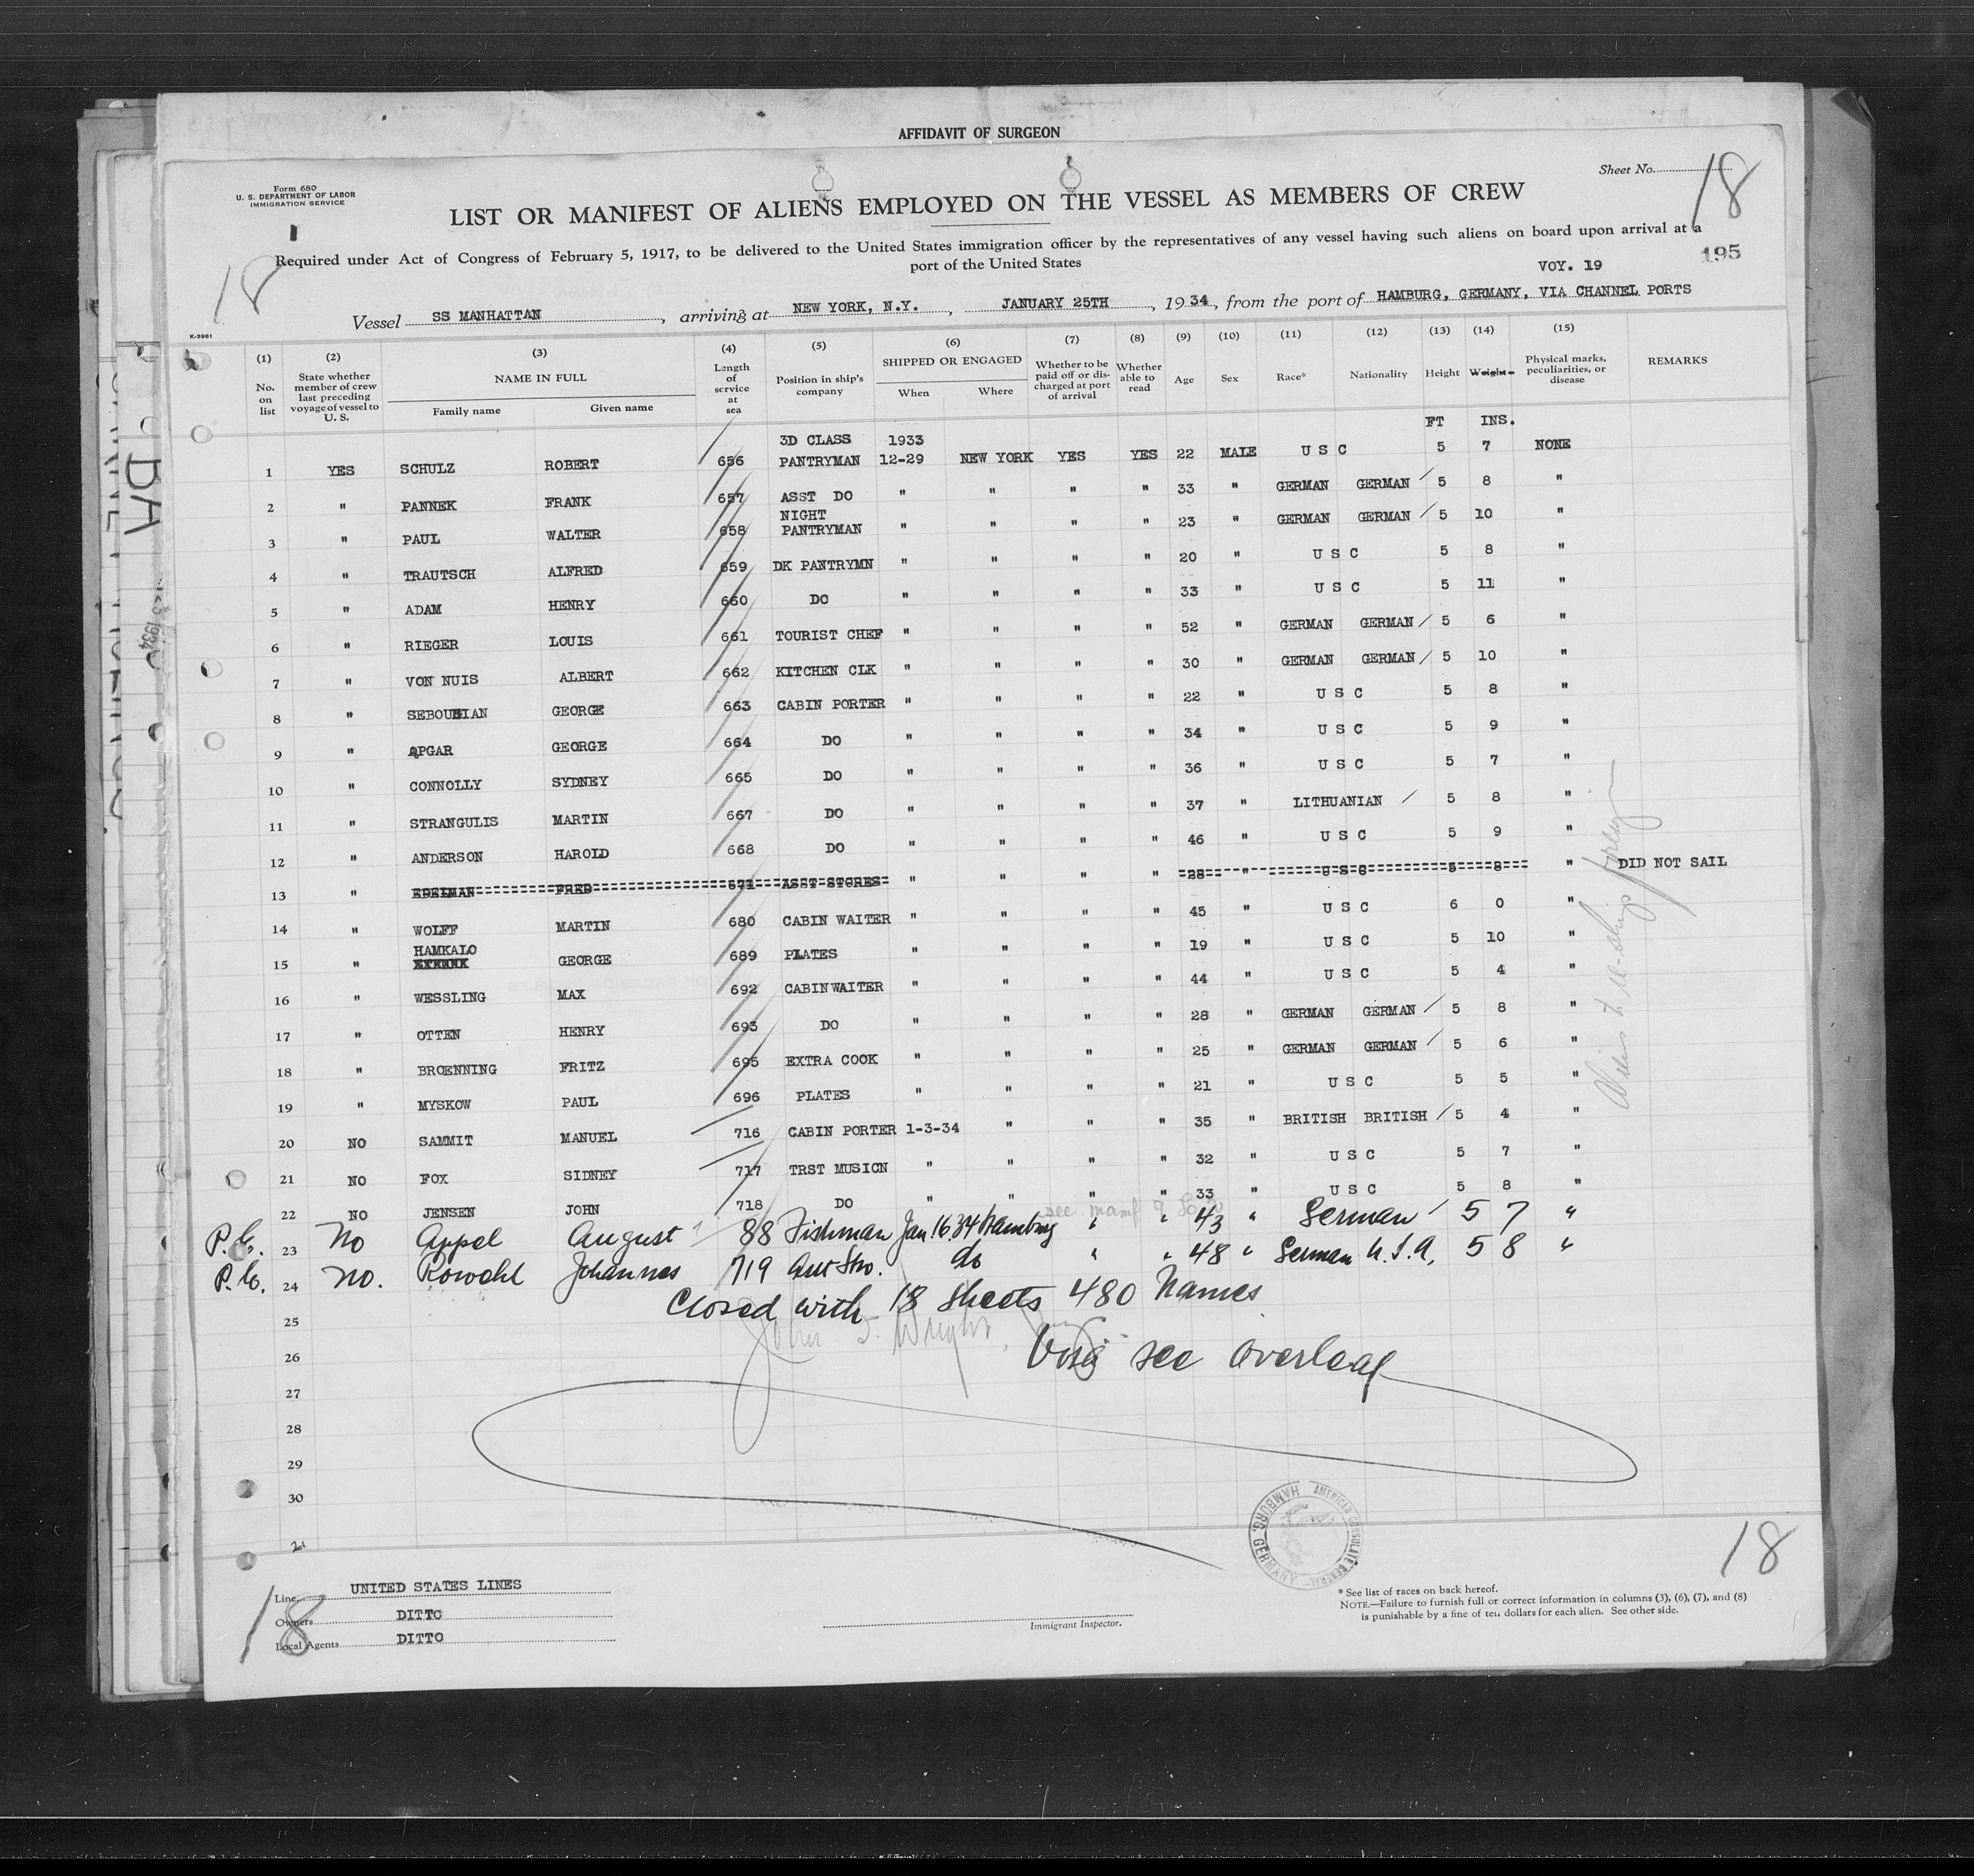 AFFIDAVIT OF SURGEON
Form 680
U. S. DEPARTMENT OF LABOR
IMMIGRATION SERVICE
Sheet No. 18
LIST OR MANIFEST OF ALIENS EMPLOYED ON THE VESSEL AS MEMBERS OF CREW
18
Required under Act of Congress of February 5, 1917, to be delivered to the United States immigration officer by the representatives of any vessel having such aliens on board upon arrival at a
port of the United States
195
VOY. 19
Vessel SS MANHATTAN, arriving at NEW YORK, N.Y., JANUARY 25TH, 1934, from the port of HAMBURG, GERMANY, VIA CHANNEL PORTS
K-3961
(1) No. on list (2) State whether member of crew last preceding voyage of vessel to U. S. (3) NAME IN FULL Family name Given name (4) Length of service at sea (5) Position in ship's company (6) SHIPPED OR ENGAGED When Where (7) Whether to be paid off or discharged at port of arrival (8) Whether able to read (9) Age (10) Sex (11) Race* (12) Nationality (13) Height (14) Weight (15) Physical marks, peculiarities, or disease REMARKS
FT INS.
3D CLASS 1933
1 YES SCHULZ ROBERT 656 PANTRYMAN 12-29 NEW YORK YES YES 22 MALE U S C 5 7 NONE
2 " PANNEK FRANK 657 ASST DO " " " " 33 " GERMAN GERMAN 5 8 "
NIGHT
3 " PAUL WALTER 658 PANTRYMAN " " " " 23 " GERMAN GERMAN 5 10 "
4 " TRAUTSCH ALFRED 659 DK PANTRYMN " " " " 20 " U S C 5 8 "
5 " ADAM HENRY 660 DO " " " " 33 " U S C 5 11 "
6 " RIEGER LOUIS 661 TOURIST CHEF " " " " 52 " GERMAN GERMAN 5 6 "
7 " VON NUIS ALBERT 662 KITCHEN CLK " " " " 30 " GERMAN GERMAN 5 10 "
8 " SEBOUHIAN GEORGE 663 CABIN PORTER " " " " 22 " U S C 5 8 "
9 " APGAR GEORGE 664 DO " " " " 34 " U S C 5 9 "
10 " CONNOLLY SYDNEY 665 DO " " " " 36 " U S C 5 7 "
11 " STRANGULIS MARTIN 667 DO " " " " 37 " LITHUANIAN 5 8 "
12 " ANDERSON HAROLD 668 DO " " " " 46 " U S C 5 9 "
13 " EDELMAN FRED 671 ASST STORES " " " " 28 " U S C 5 8 " DID NOT SAIL
14 " WOLFF MARTIN 680 CABIN WAITER " " " " 45 " U S C 6 0 "
HAMKALO
15 " GEORGE 689 PLATES " " " " 19 " U S C 5 10 "
16 " WESSLING MAX 692 CABINWAITER " " " " 44 " U S C 5 4 "
17 " OTTEN HENRY 693 DO " " " " 28 " GERMAN GERMAN 5 8 "
18 " BROENNING FRITZ 695 EXTRA COOK " " " " 25 " GERMAN GERMAN 5 6 "
19 " MYSKOW PAUL 696 PLATES " " " " 21 " U S C 5 5 "
20 NO SAMMIT MANUEL 716 CABIN PORTER 1-3-34 " " " 35 " BRITISH BRITISH 5 4 "
21 NO FOX SIDNEY 717 TRST MUSICN " " " " 32 " U S C 5 7 "
22 NO JENSEN JOHN 718 DO " " " " 33 " U S C 5 8 "
P.C. 23 No Appel August 88 Fishman Jan 16 34 Hamburg " " 43 " German 5 7 "
P.C. 24 No. Rowohl Johannes 719 do " " 48 " German U.S.A. 5 8 "
Closed with 18 sheets 480 Names
25
26 Visa see overleaf
27
28
29
30
Aliens to re-ship foreign
AMERICAN CONSULATE GENERAL HAMBURG, GERMANY
18
Line UNITED STATES LINES
Owners DITTO
Local Agents DITTO
18
Immigrant Inspector.
* See list of races on back hereof.
NOTE.—Failure to furnish full or correct information in columns (3), (6), (7), and (8)
is punishable by a fine of ten dollars for each alien. See other side.